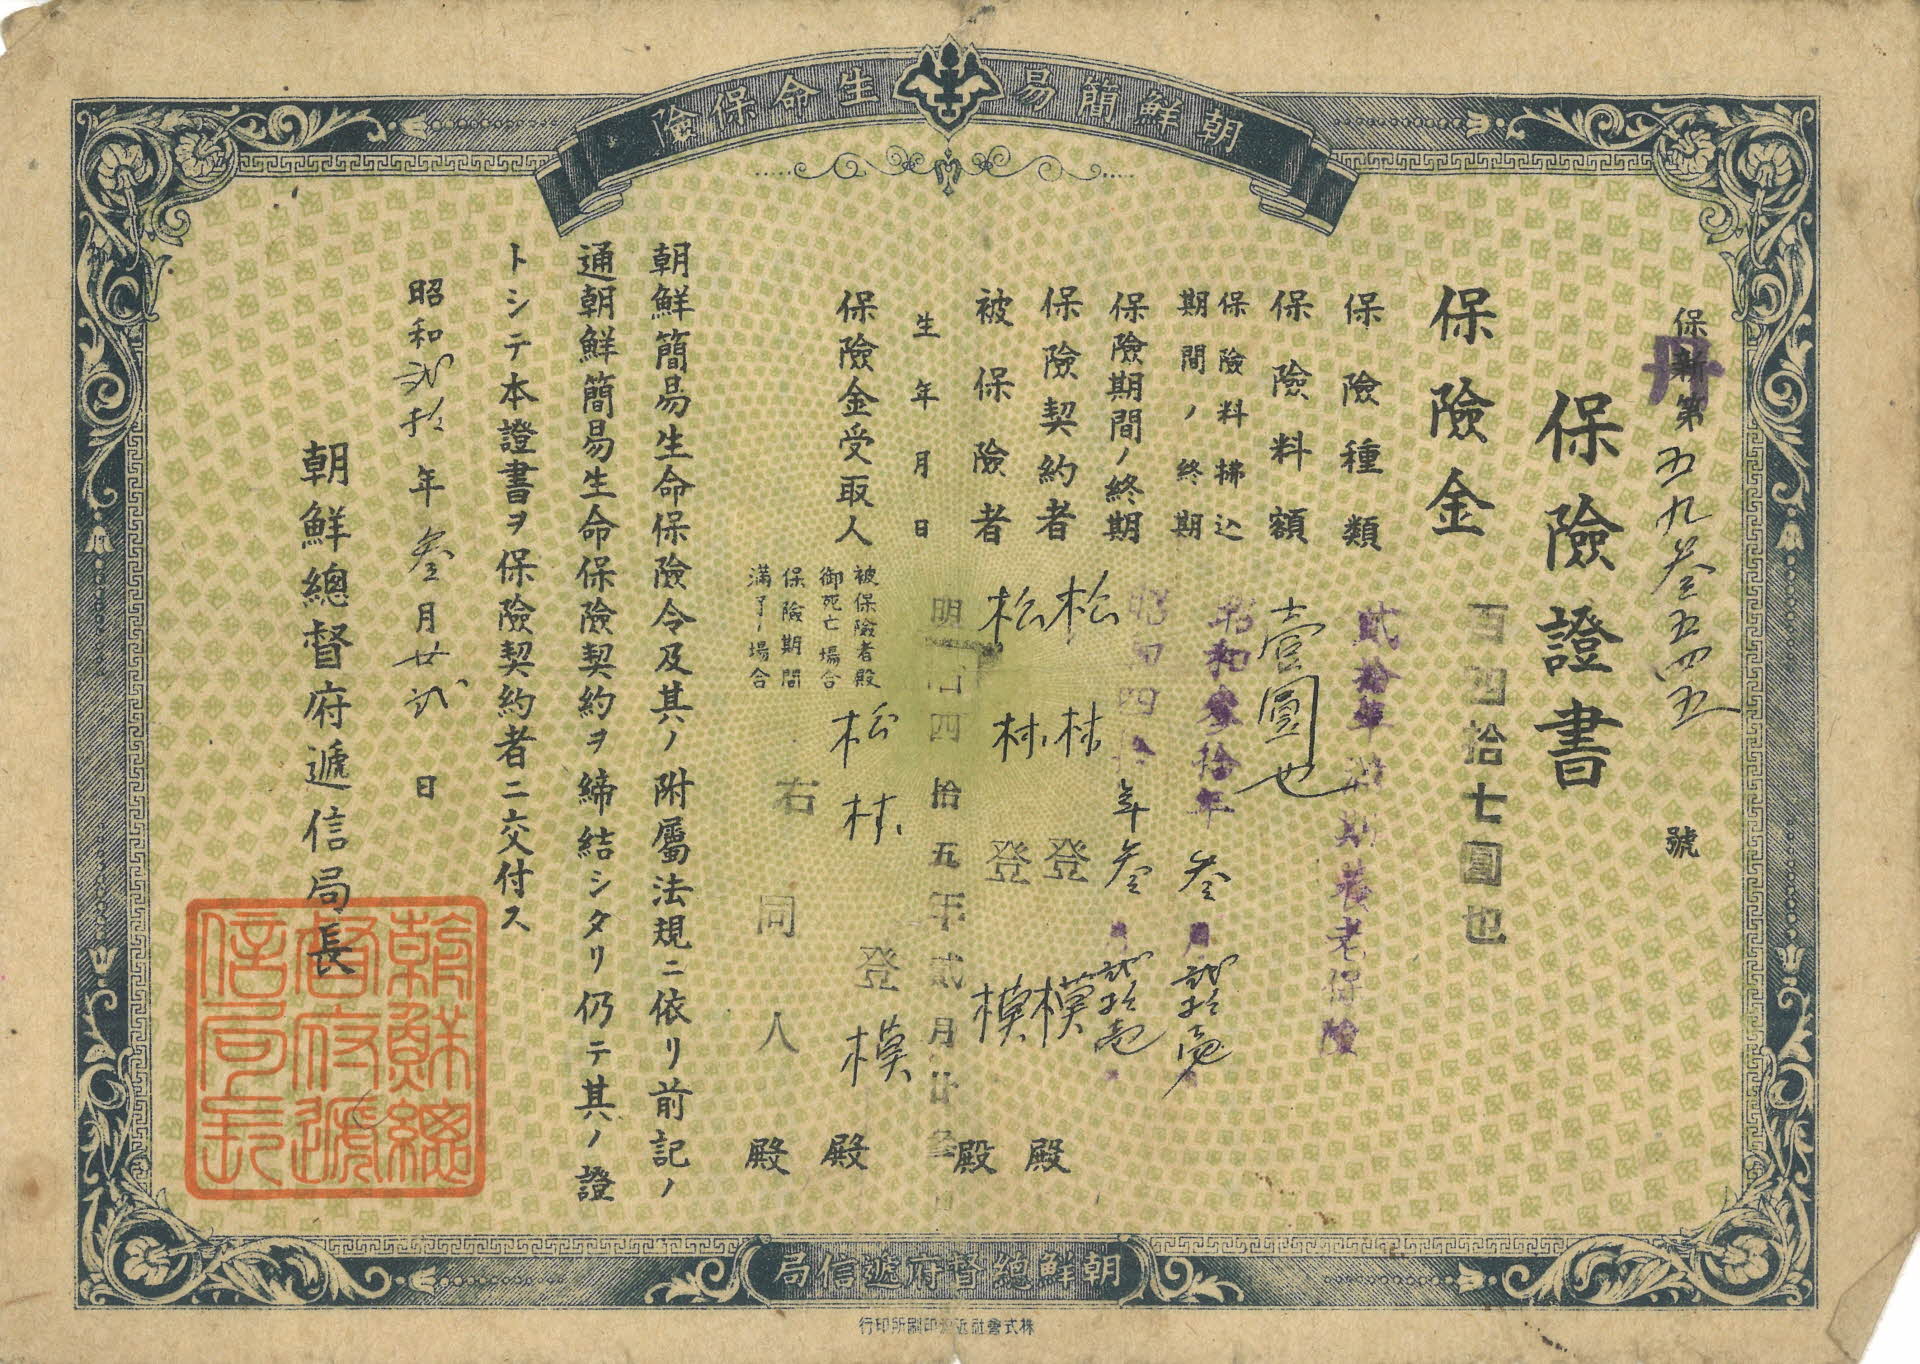 朝鮮簡易生命保險
保新第五九叄五四五號
丹
保險證書
保險金 百四拾七圓也
保險種類 貳拾年滿期養老保險
保險料額 壹圓也
保險料拂込期間ノ終期 昭和參拾年叄月貳拾壱
保險期間ノ終期 昭和四十年叄月貳拾壱
保險契約者 松村登模殿
被保險者 松村登模殿
生年月日 明治四拾五年貳月廿
保險金受取人
被保險者殿御死亡ノ場合 松村登模殿
保險期間滿了ノ場合 右同人殿
朝鮮簡易生命保險令及其ノ附屬法規ニ依リ前記ノ
通朝鮮簡易生命保險契約ヲ締結シタリ仍テ其ノ證
トシテ本證書ヲ保險契約者ニ交付ス
昭和貳拾年叄月廿貳日
朝鮮總督府遞信局長
朝鮮總督府遞信局長
朝鮮總督府遞信局
株式會社近澤印刷所印行